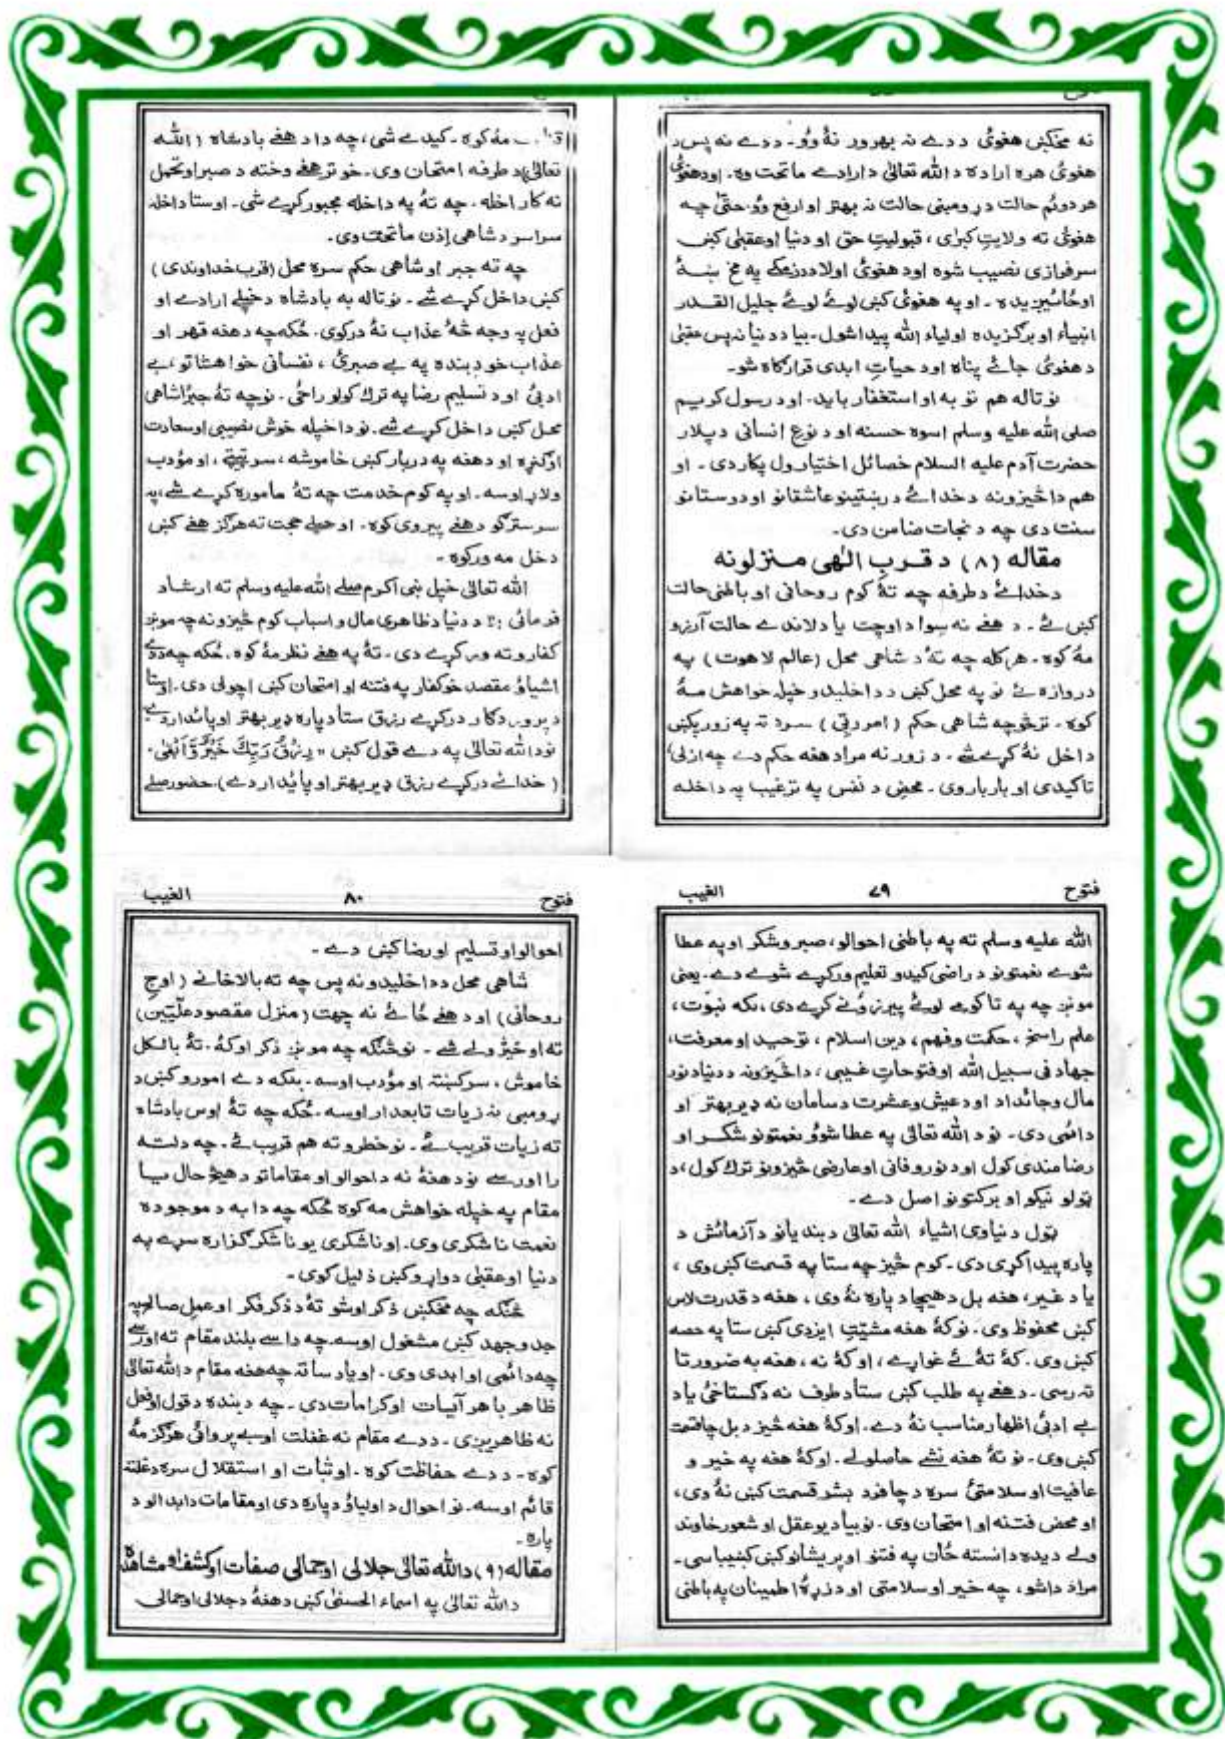 نه مخکښ هغوئ ددے نه بهرور نۀ وو۔ ددے نه پس د
هغوئ هره اراده د الله تعالیٰ دارادے ماتحت وه۔ اود هغوئ
هر دوئم حالت د ړومبنی حالت نه بهتر او ارفع وو حتیٰ چه
هغوئ ته ولایتِ کبرٰی، قبولیتِ حق او دنیا او عقبٰی کښ
سرفرازی نصیب شوه اود هغوئ اولاد دزمکے په مخ ښۀ
اوځائیږیده۔ او په هغوئ کښ لوئے لوئے جلیل القدر
انبیاء او برګزیده اولیاء الله پیدا شول۔ بیا د دنیا نه پس عقبٰی
د هغوئ جائے پناه اود حیاتِ ابدی قرارګاه شو۔
نو تاله هم توبه او استغفار باید۔ اود رسول کریم
صلی الله علیه وسلم اسوه حسنه او د نوعِ انسانی د پلار
حضرت آدم علیه السلام خصائل اختیارول پکار دی۔ او
هم دا څیزونه د خدائے د رښتینو عاشقانو او دوستانو
سنت دی چه د نجات ضامن دی۔
مقاله (۸) د قربِ الٰهی منزلونه
د خدائے د طرفه چه تۀ کوم روحانی او باطنی حالت
کښ ئے۔ د هغے نه سوا د اوچت یا د لاندے حالت آرزو
مۀ کوه۔ هرکله چه تۀ د شاهی محل (عالم لاهوت) په
دروازه ئے نو په محل کښ د داخلیدو خپله خواهش مۀ
کوه۔ ترڅو چه شاهی حکم (امر ربّی) سره ته په زور پکښ
داخل نۀ کړے شے۔ د زور نه مراد هغه حکم دے چه ازلی،
تاکیدی او بار بار وی۔ محض د نفس په ترغیب په داخله
مۀ کوه۔ کیدے شی، چه دا د هغے بادشاه (الله
تعالیٰ) د طرفه امتحان وی۔ خو تر هغے وخته د صبر او تحمل
نه کار اخله۔ چه تۀ په داخله مجبور کړے شی۔ او ستا داخله
سراسر د شاهی اِذن ماتحت وی۔
چه ته جبر او شاهی حکم سره محل (قربِ خداوندی)
کښ داخل کړے شے۔ نو تاله به بادشاه د خپلے ارادے او
فعل په وجه څۀ عذاب نۀ درکوی۔ ځکه چه د هغه قهر او
عذاب خو د بنده په بے صبرئ، نفسانی خواهشاتو، بے
ادبئ او د تسلیم رضا په ترک کولو راځی۔ نو چه تۀ جبرًا شاهی
محل کښ داخل کړے شے۔ نو دا خپله خوش نصیبی او سعادت
اوګنړه او د هغه په دربار کښ خاموشه، سر ټیټے، او مؤدب
ولاړ اوسه۔ او په کوم خدمت چه تۀ ماموره کړے شے، په
سر سترګو د هغے پیروی کوه۔ او خپلے حجت ته هرګز هغے کښ
دخل مه ورکوه۔
الله تعالیٰ خپل نبی اکرم صلے الله علیه وسلم ته ارشاد
فرمائی: د دنیا د ظاهری مال و اسباب کوم څیزونه چه مونږ
کفارو ته ورکړے دی۔ تۀ په هغے نظر مۀ کوه۔ ځکه چه ددے
اشیاؤ مقصد خو کفار په فتنه او امتحان کښ اچولی دی۔ او ستا
د پروردګار درکړے رزق ستا دپاره ډیر بهتر او پائدار دے۔
نو د الله تعالیٰ په دے قول کښ "رِزْقُ رَبِّكَ خَيْرٌ وَّاَبْقٰی۔
(خدائے درکړے رزق ډیر بهتر او پائیدار دے)۔ حضور صلے
فتوح ۷۹ الغیب
الله علیه وسلم ته په باطنی احوالو، صبر و شکر او په عطا
شوے نعمتونو د راضی کیدو تعلیم ورکړے شوے دے۔ یعنی
مونږ چه په تا کومے لوئے پیرزوئے کړے دی، لکه نبوّت،
علم راسخ، حکمت و فهم، دین اسلام، توحید او معرفت،
جهاد فی سبیل الله او فتوحاتِ غیبی، دا څیزونه د دنیا د نور
مال و جائداد او د عیش و عشرت د سامان نه ډیر بهتر او
دائمی دی۔ نو د الله تعالیٰ په عطا شوو نعمتونو شکر او
رضامندی کول اود نورو فانی او عارضی څیزونو ترک کول، د
ټولو نیکو او برکتونو اصل دے۔
ټول دنیاوی اشیاء الله تعالیٰ د بندیانو د آزمائش د
پاره پیدا کړی دی۔ کوم څیز چه ستا په قسمت کښ وی،
یا د غیر، هغه بل د هیچا دپاره نۀ وی، هغه د قدرت لاس
کښ محفوظ وی۔ نو کۀ هغه مشیّتِ ایزدی کښ ستا په حصه
کښ وی۔ کۀ تۀ ئے غواړے، او کۀ نه، هغه به ضرور تا
ته رسی۔ د هغے په طلب کښ ستا د طرف نه د ګستاخئ یا د
بے ادبئ اظهار مناسب نۀ دے۔ او کۀ هغه څیز د بل چا قسمت
کښ وی۔ نو تۀ هغه نشے حاصلولے۔ او کۀ هغه په خیر و
عافیت او سلامتئ سره د چا فرد بشر قسمت کښ نۀ وی،
او محض فتنه او امتحان وی۔ نو بیا د یو عقل او شعور خاوند
ولے دیده دانسته ځان په فتنو او پریشانو کښ کښیباسی۔
مراد دا شو، چه خیر او سلامتی او د زړۀ اطمینان په باطنی
فتوح ۸۰ الغیب
احوالو او تسلیم او رضا کښ دے۔
شاهی محل د داخلیدو نه پس چه ته بالاخانے (اوجِ
روحانی) او د هغے ځائے نه چهت (منزل مقصود علّیّین)
ته اوخیژولے شے۔ نو څنګه چه مونږ ذکر اوکۀ۔ تۀ بالکل
خاموش، سرکښته او مؤدب اوسه۔ بلکه دے امورو کښ د
ړومبی نه زیات تابعدار اوسه۔ ځکه چه تۀ اوس بادشاه
ته زیات قریب ئے۔ نو خطرو ته هم قریب ئے۔ چه دلته
را اورسے نو د هغۀ نه د احوالو او مقاماتو د هیڅ حال یا
مقام په خپله خواهش مه کوه ځکه چه دا به د موجوده
نعمت ناشکری وی۔ او ناشکری یو ناشکرګزاره سړے په
دنیا او عقبٰی دواړو کښ ذلیل کوی۔
څنګه چه مخکښ ذکر اوشو تۀ د ذکر فکر او عمل صالح په
جد و جهد کښ مشغول اوسه۔ چه داسے بلند مقام ته اورسے
چه دائمی او ابدی وی۔ او یاد ساته چه هغه مقام د الله تعالیٰ
ظاهر باهر آیات او کرامات دی۔ چه د بنده د قول او فعل
نه ظاهریږی۔ ددے مقام نه غفلت او بے پروائی هرګز مۀ
کوه۔ ددے حفاظت کوه۔ او ثبات او استقلال سره دغلته
قائم اوسه۔ نو احوال د اولیاؤ دپاره دی او مقامات د ابدالو د
پاره۔
مقاله (۹) د الله تعالیٰ جلالی او جمالی صفات او کشف او مشاهده
د الله تعالیٰ په اسماء الحسنٰی کښ د هغۀ د جلالی او جمالی